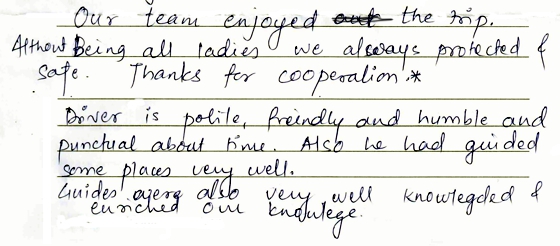 Our team enjoyed out the trip.
Althout Being all ladies we always protected &
safe. Thanks for cooperation *
Driver is polite, freindly and humble and
punctual about time. Also he had guided
some places very well.
Guides were also very well knowlegded &
enriched our knowlege.